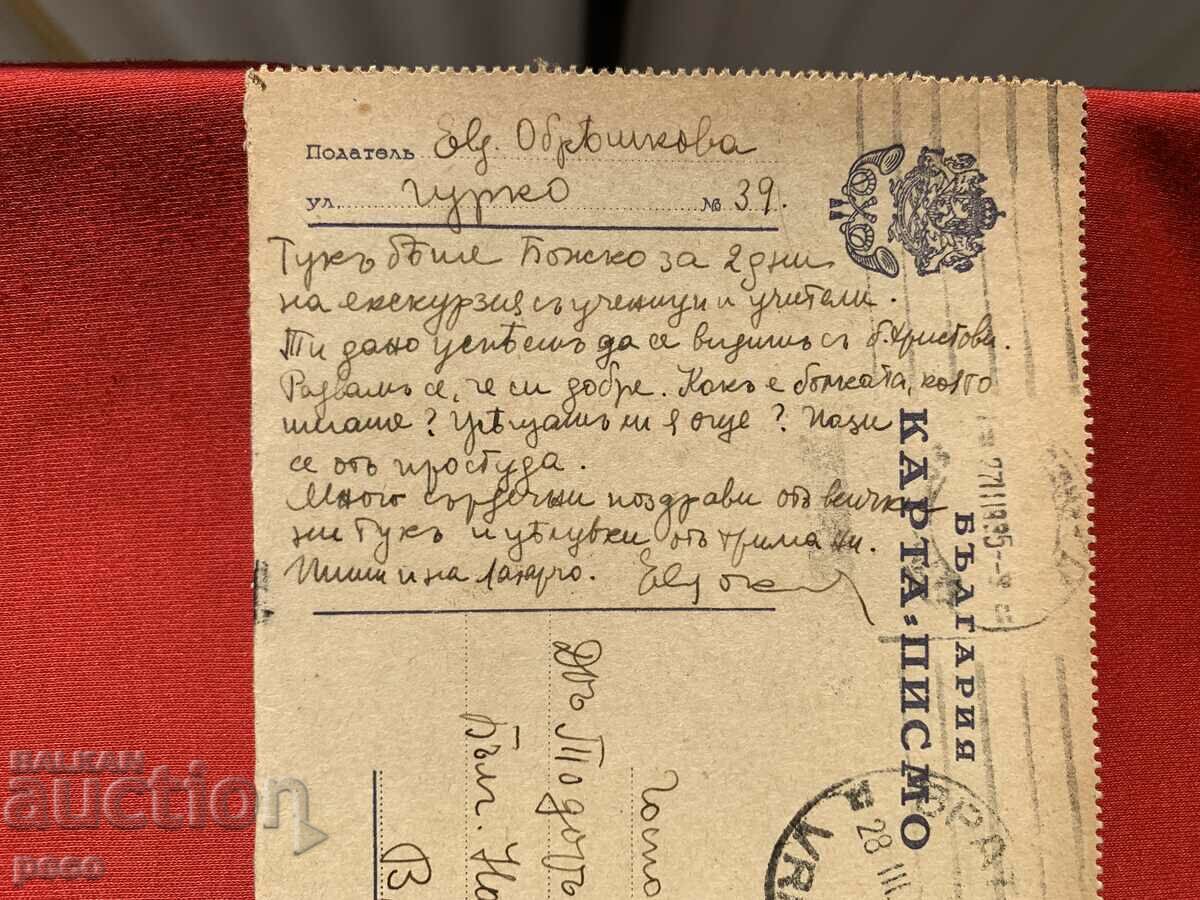 Податель Евд. Обрѣшкова
ул. Гурко № 39.
Тукъ бѣше Божко за 2 дни
на екскурзия съ ученици и учители.
Ти дано успѣешъ да се видишъ съ б. Христови.
Радвамъ се, че си добре. Какъ е болката, която
имаше? Усѣщашъ ли я още? Пази
се отъ простуда.
Много сърдечни поздрави отъ всички
ни тукъ и цѣлувки отъ трима ни.
Пиши и на
КАРТА-ПИСМО
БЪЛГАРИЯ
27III1935
28 III
Дръ Тодоръ
Бълг. На
В
BALKAN
auction
peco